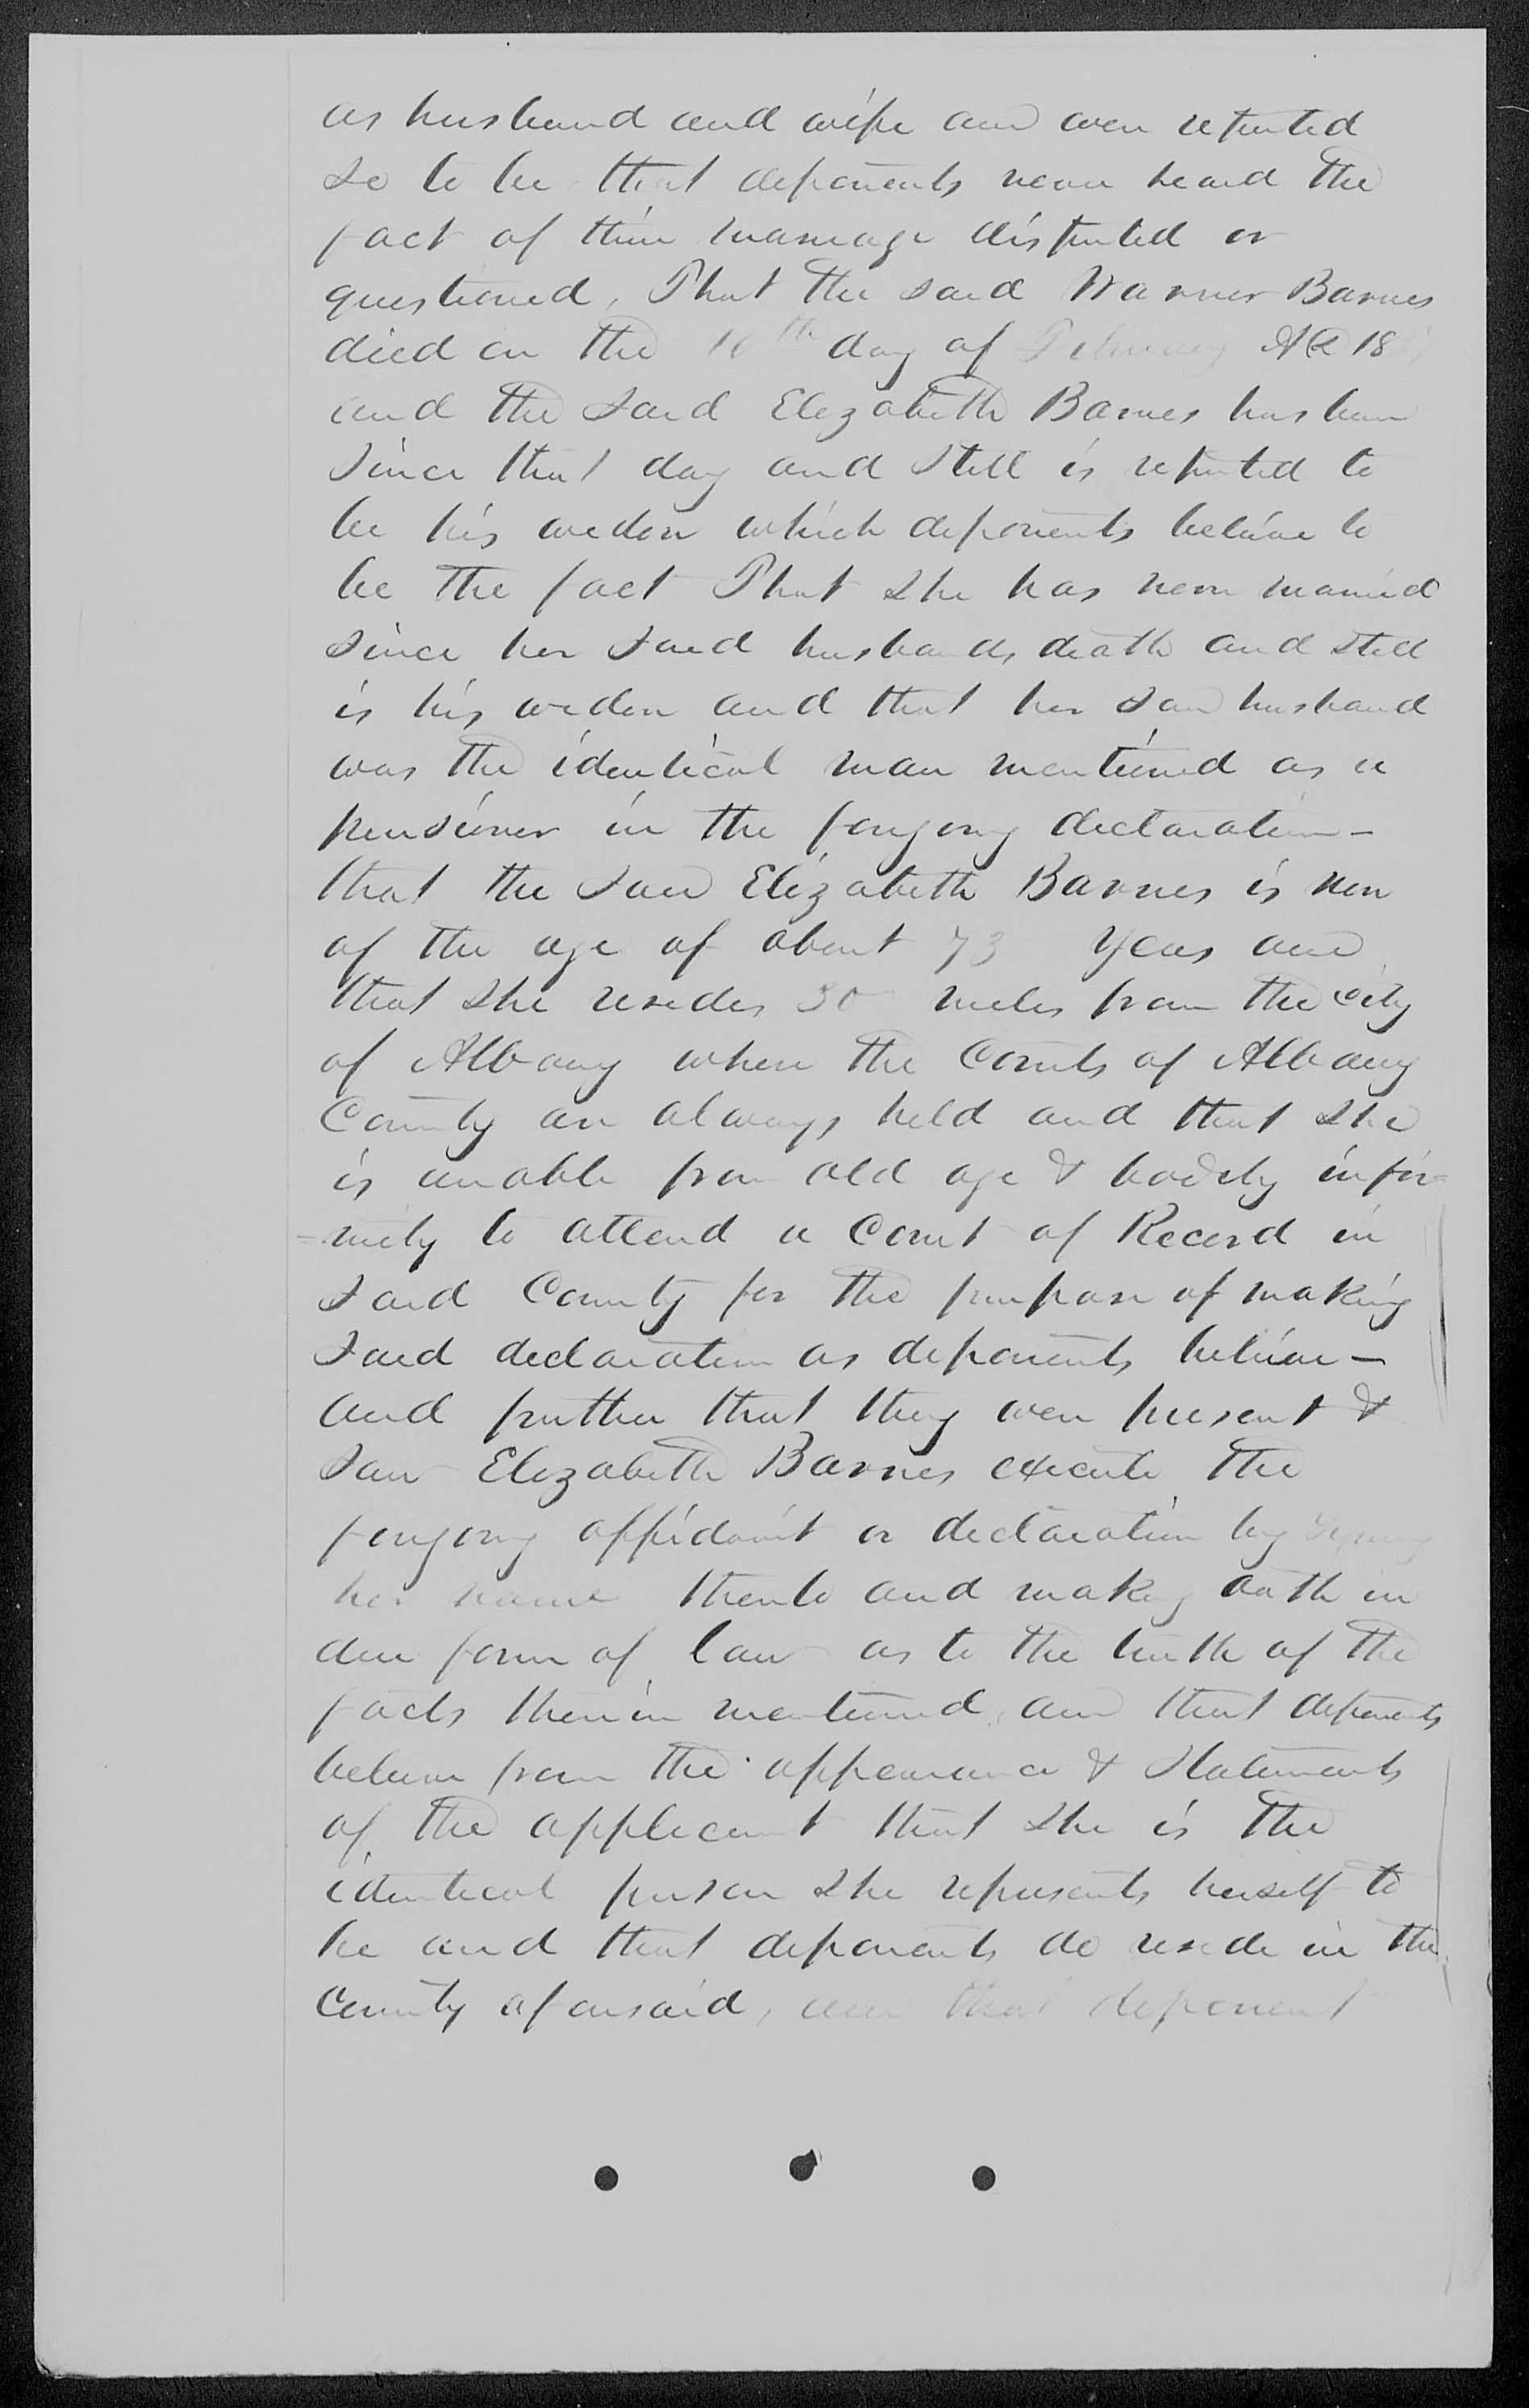 as husband and wife and were reputed
so to be, that deponents never heard the
fact of their marriage disputed or
questioned, That the said Warner Barnes
died on the 10th day of February AD 18
and the said Elizabeth Barnes has been
since that day and still is reputed to
be his widow which deponents believe to
be the fact That she has never married
since her said husbands death and still
is his widow and that her said husband
was the identical man mentioned as a
pensioner in the foregoing declaration -
that the said Elizabeth Barnes is now
of the age of about 73 years and
that she resides 30 miles from the city
of Albany where the Courts of Albany
County are always held and that she
is unable from old age & bodily infir=
=mity to attend a Court of Record in
said County for the purpose of making
said declaration as deponents believe -
and further that they were present &
saw Elizabeth Barnes execute the
foregoing affidavit or declaration by signing
her name thereto and making oath in
due form of law as to the truth of the
facts therein mentioned, and that deponents
believe from the appearance & statements
of the applicant that she is the
identical person she represents herself to
be and that deponents do reside in the
County aforesaid, and that deponent